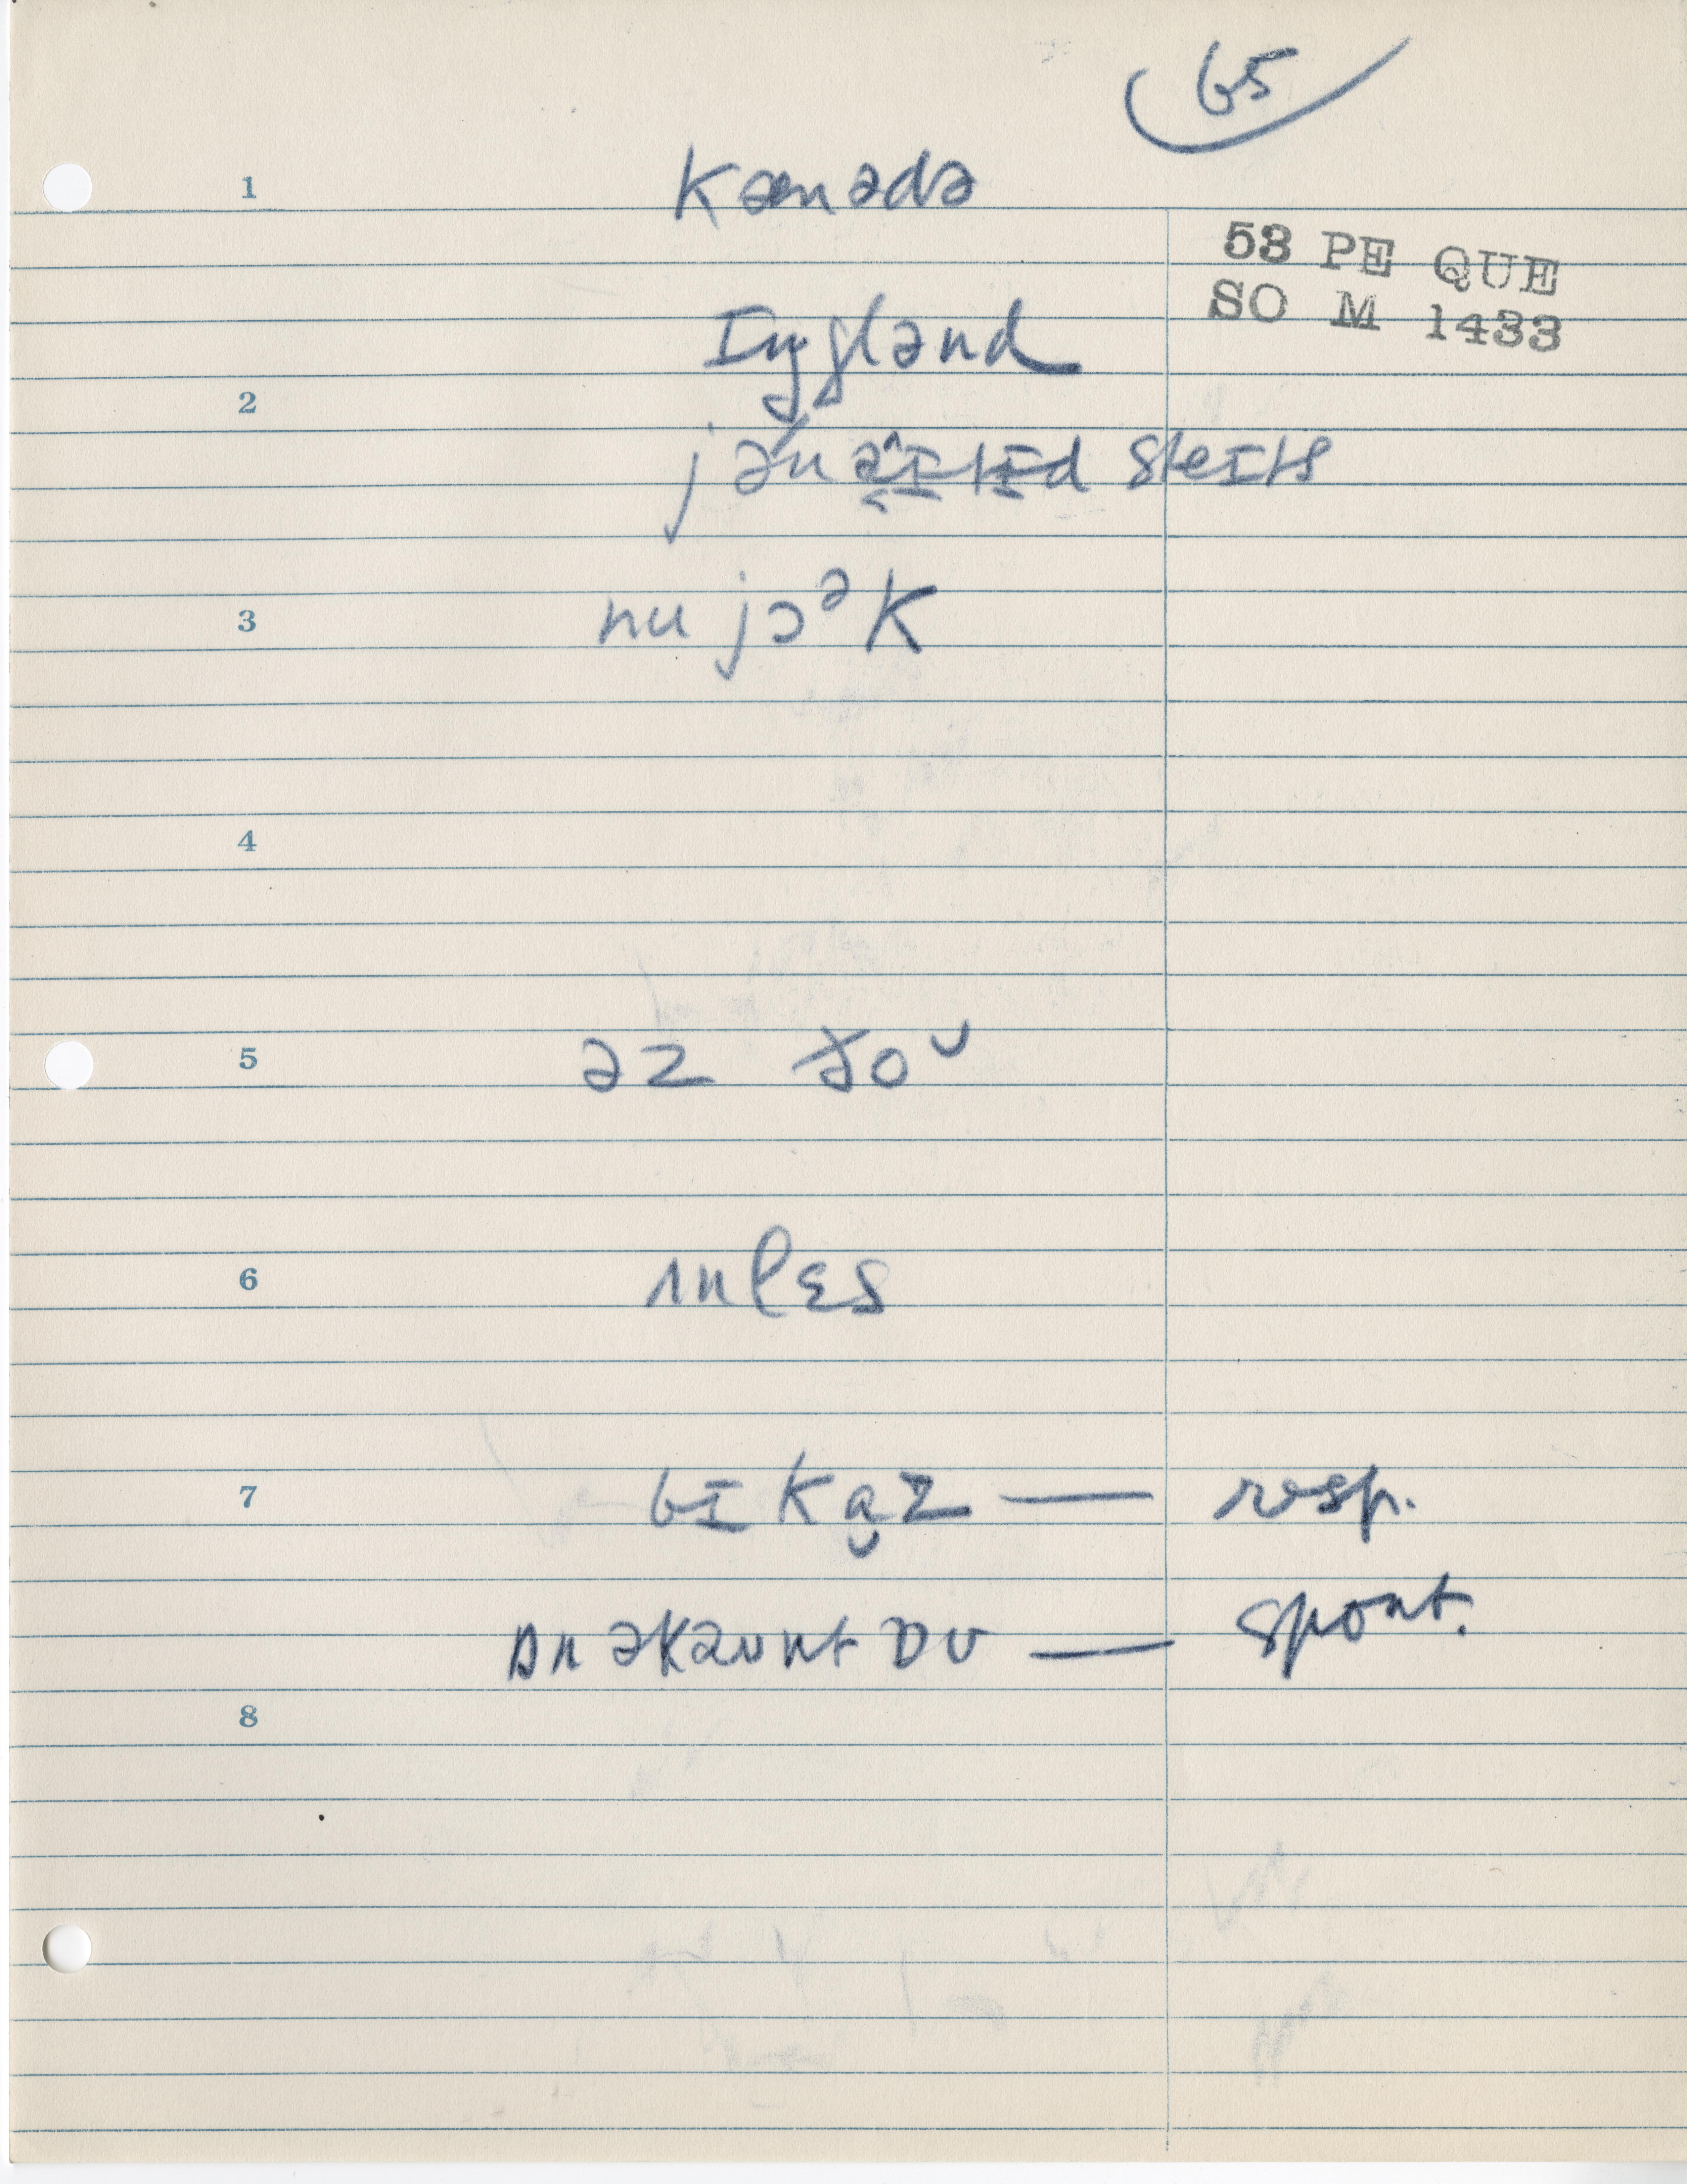 65
1
kænədə
53 PE QUE
SO M 1433
ɪŋglənd
2
jənəɪtɪd steɪts
3
nu jɔᵊk
4
5
əz ðoᶷ
6
ʌnlɛs
7
bɪkɑ̯z — resp.
ɒn əkaʊnt ɒv — spont.
8